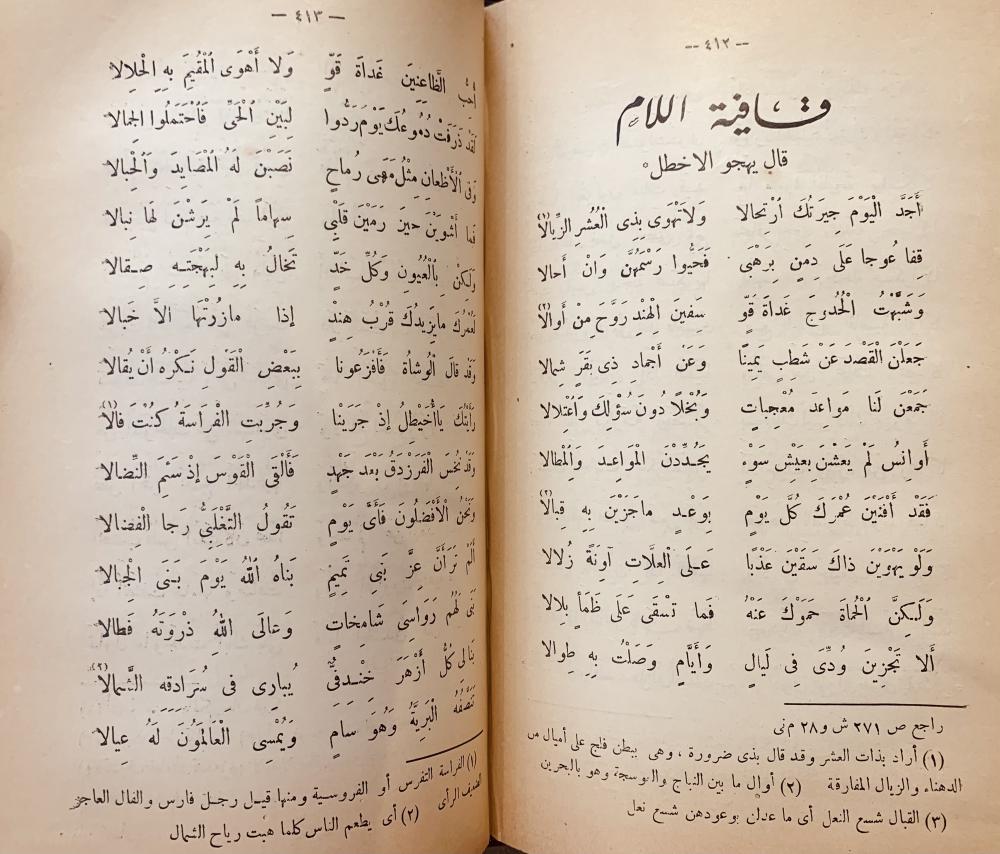 — ٤١٢ —
قافية اللام
قال يهجو الاخطل
أَجَدَّ الْيَوْمَ جِيرَتُكَ ارْتِحَالا وَلاَ تَهْوَى بِذِى الْعُشَرِ الزِّيَالاَ (١)
قِفا عُوجا عَلَى دِمَنٍ بِرَهْبَى فَحَيُّوا رَسْمَهُنَّ وَانْ أَحالا
وَشَبَّهْتُ الْحُدُوجَ غَداَةَ قَوٍّ سَفِينَ الْهِنْدِ رَوَّحَ مِنْ أَوالاَ (٢)
جَعَلْنَ الْقَصْدَ عَنْ شَطِبٍ يَمِينًا وَعَنْ أَجْمادِ ذِى بَقَرٍ شِمالا
جَمَعْنَ لَنا مَواعِدَ مُعْجِباتٍ وَبُخْلاً دُونَ سُؤْلِكَ وَاعْتِلالا
أَوانِسُ لَمْ يَعِشْنَ بِعَيْشِ سَوْءٍ يُجَدِّدْنَ الْمَواعِدَ وَالْمِطالا
فَقَدْ أَفْنَيْنَ عُمْرَكَ كُلَّ يَوْمٍ بِوَعْدٍ ماجَزَيْنَ بِهِ قِبالاَ (٣)
وَلَوْ يَهْوَيْنَ ذاكَ سَقَيْنَ عَذْبًا عَلَى الْعِلاَّتِ آوِنَةً زُلالا
وَلَكِنَّ الْحُماةَ حَمَوْكَ عَنْهُ فَما تَسْقَى عَلَى ظَمَأٍ بِلالا
أَلا تَجْزِينَ وُدِّى فِى لَيالٍ وَأَيَّامٍ وَصَلْتُ بِهِ طِوالا
راجع ص ٢٧١ ش و ٢٨ م نى
(١) أراد بذات العشر وقد قال بذى ضرورة ، وهى ببطن فلج على أميال من
الدهناء والزيال المفارقة (٢) أوال ما بين النباج والعوسجة وهو بالبحرين
(٣) القبال شسع النعل أى ما عدلن بوعودهن شسع نعل
— ٤١٣ —
أُحِبُّ الظَّاعِنِينَ غَداَةَ قَوٍّ وَلا أَهْوَى الْمُقِيمَ بِهِ الْحِلالا
لَقَدْ ذَرَفَتْ دُمُوعُكَ يَوْمَ رَدُّوا لِبَيْنِ الْحَىِّ فَاحْتَمَلُوا الْجِمالا
وَفى الْأَظْعانِ مِثْلُ مَهَى رُماحٍ نَصَبْنَ لَهُ الْمَصايِدَ وَالْحِبالا
فَما أَشْوَيْنَ حِينَ رَمَيْنَ قَلْبِى سِهاماً لَمْ يَرِشْنَ لَها نِبالا
وَلَكِنْ بِالْعُيُونِ وَكُلِّ خَدٍّ تَخالُ بِهِ لِبَهْجَتِهِ صِقالا
لَعَمْرُكَ مايَزِيدُكَ قُرْبُ هِنْدٍ إذا مازُرْتَها الاَّ خَبالا
وَقَدْ قالَ الْوُشاةُ فَأَفْزَعُونا بِبَعْضِ الْقَوْلِ نَكْرَهُ أَنْ يُقالا
رَأَيْتُكَ ياأُخَيْطِلُ إذْ جَرَيْنا وَجُرِّبَتِ الْفَراسَةُ كُنْتَ فالاَ (١)
وَقَدْ نُخِسَ الْفَرَزْدَقُ بَعْدَ جَهْدٍ فَأَلْقَى الْقَوْسَ إذْ سَئِمَ النِّضالا
وَنَحْنُ الْأَفْضَلُونَ فَأَىَّ يَوْمٍ تَقُولُ التَّغْلَبِىُّ رَجا الْفِضالا
أَلَمْ تَرَ أَنَّ عِزَّ بَنِى تَمِيمٍ بَناهُ اللهُ يَوْمَ بَنَى الْجِبالا
بَنَى لَهُمُ رَواسِىَ شامِخاتٍ وَعالَى اللهُ ذِرْوَتَهُ فَطالا
بَنالِى كُلُّ أَزْهَرَ خِنْدِفِىٍّ يُبارِى فِى سُرَادِقِهِ الشَّمالاَ (٢)
تَنَصَّفُهُ الْبَرِيَّةُ وَهُوَ سامٍ وَيُمْسِى الْعالَمُونَ لَهُ عِيالا
(١) الفراسة التفرس أو الفروسية ومنها قيل رجل فارس والفال العاجز
الضعيف الرأى (٢) أى يطعم الناس كلما هبت رياح الشمال